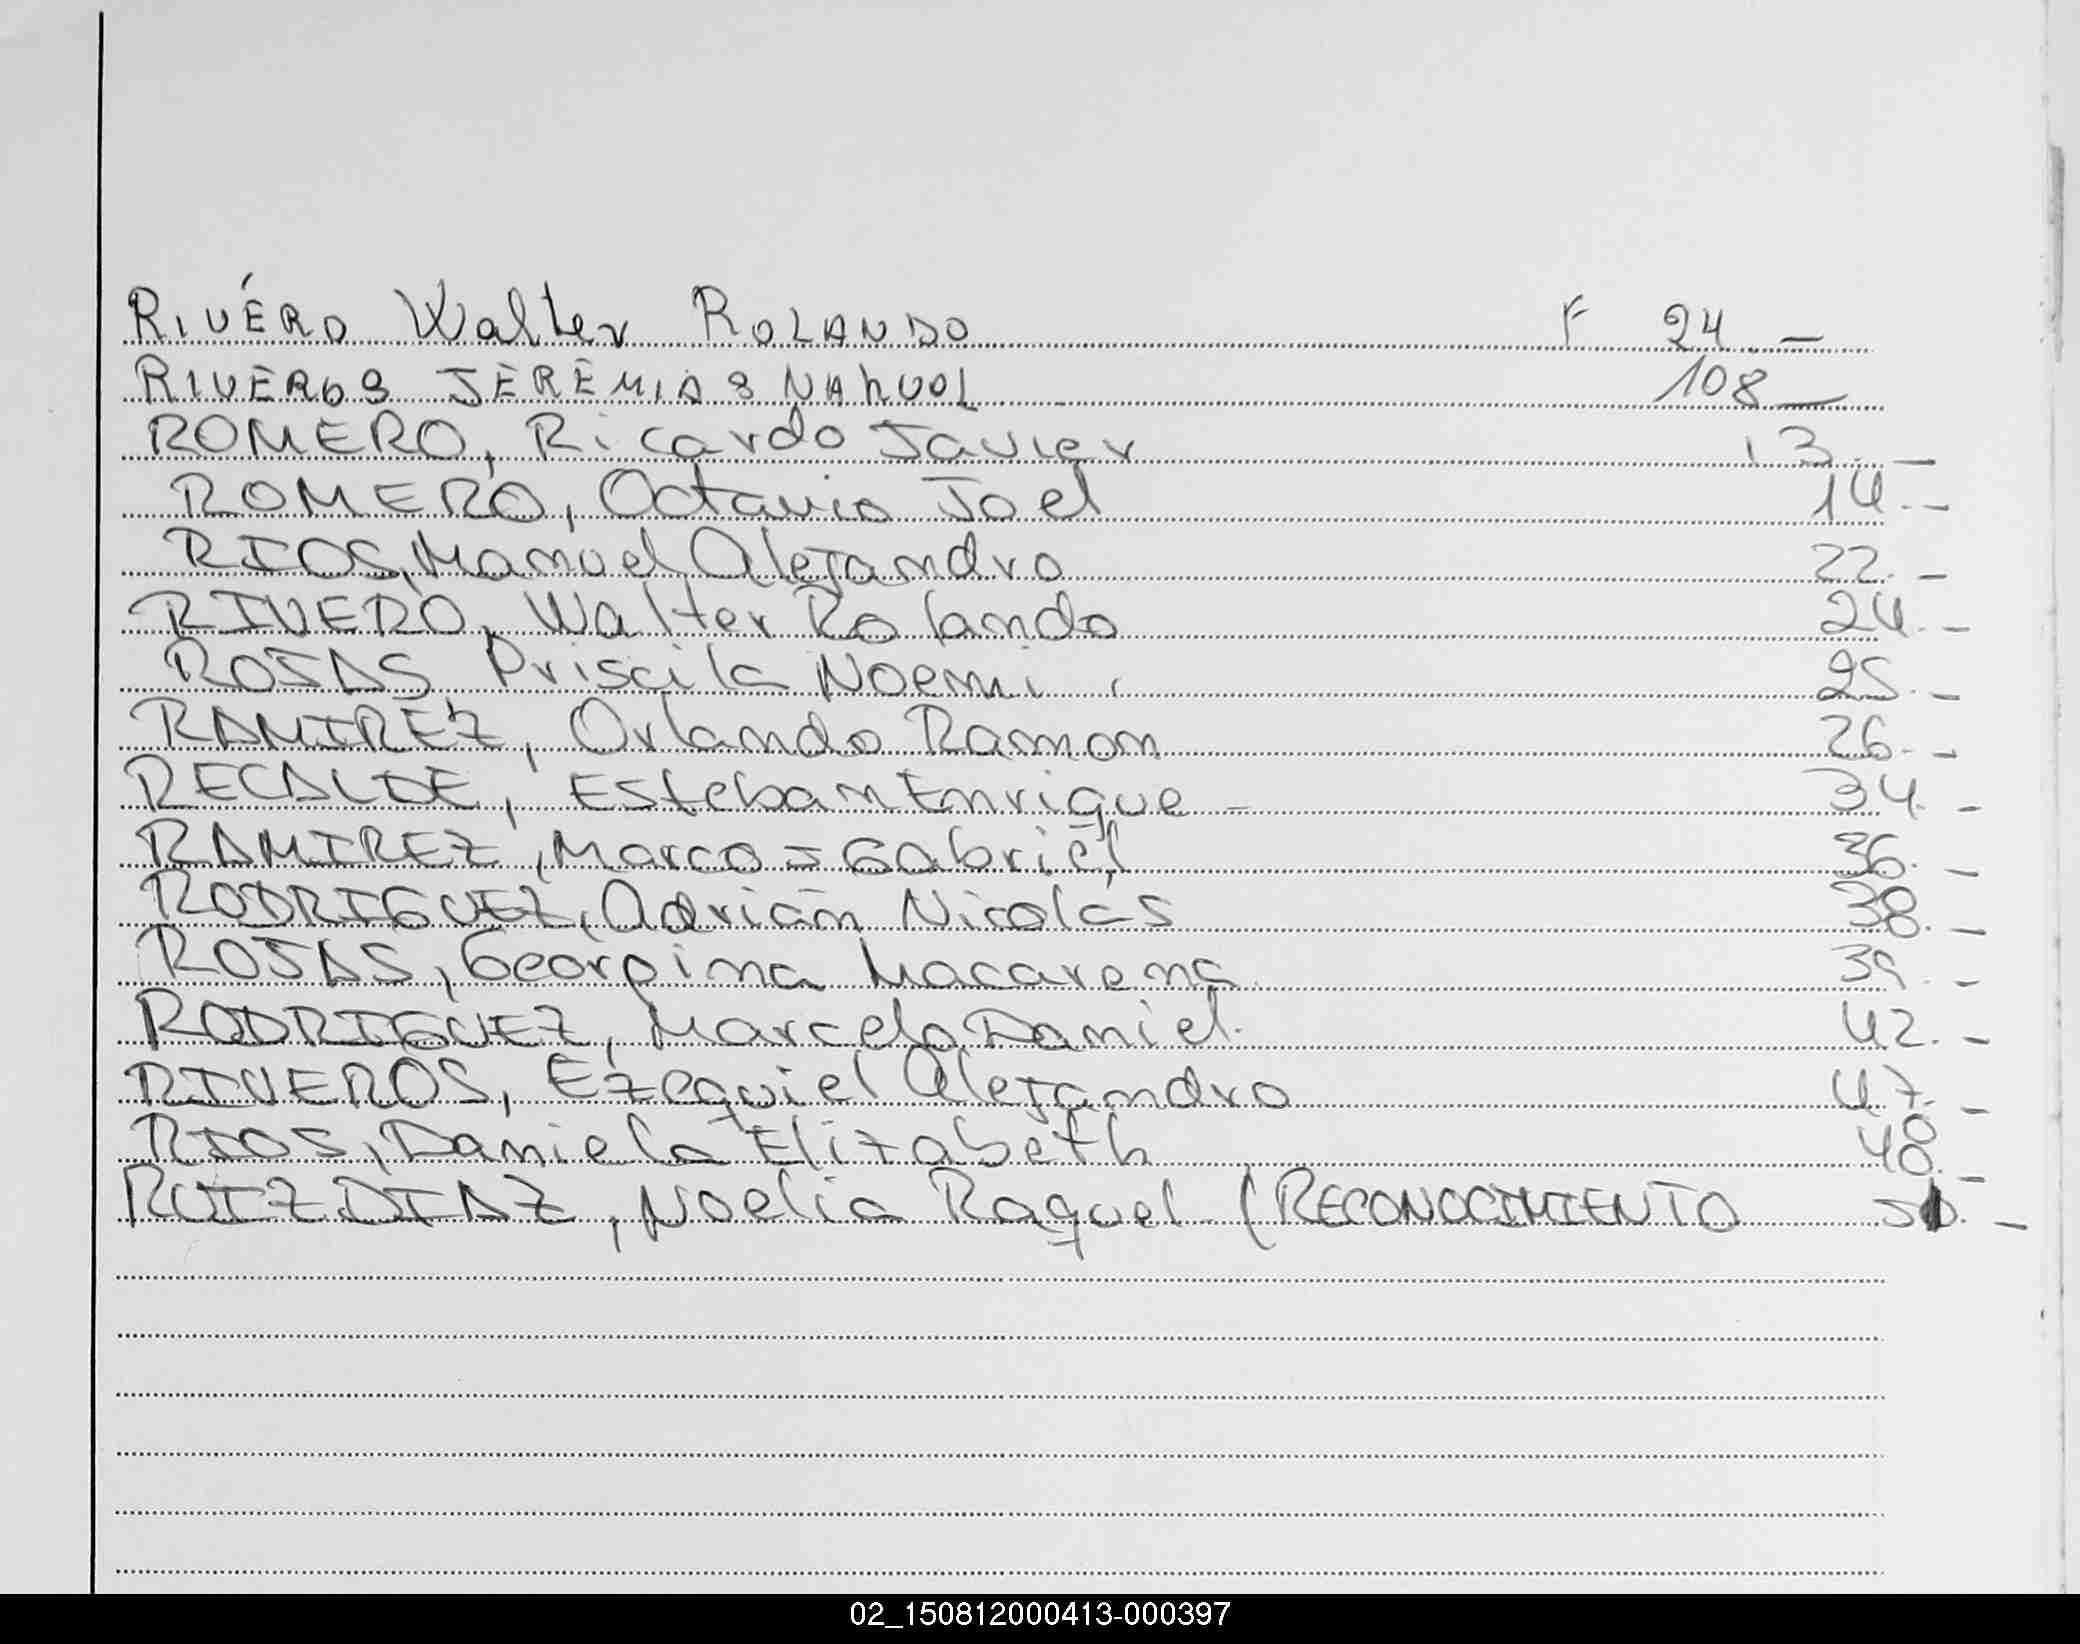 RIVÉRO Walter ROLANDO F 24.—
RIVEROS JEREMIAS NAhUOL 108—
ROMERO, Ricardo Javier 13.—
ROMERO, Octavio Joel 14.-
RIOS, Manuel Alejandro 22.-
RIVERO, Walter Rolando 24.-
ROJAS Priscila Noemi 25.-
RAMIREZ, Orlando Ramon 26.-
RECALDE, Esteban Enrique - 34.-
RAMIREZ, Marcos Gabriel 36.-
RODRIGUEZ, Adrián Nicolás 38.-
ROJAS, Georgina Macarena 39.-
RODRIGUEZ, Marcelo Daniel. 42.-
RIVEROS, Ezequiel Alejandro 47.-
RIOS, Daniela Elizabeth 48.-
RUIZ DIAZ, Noelia Raquel (RECONOCIMIENTO 51.-
02_150812000413-000397